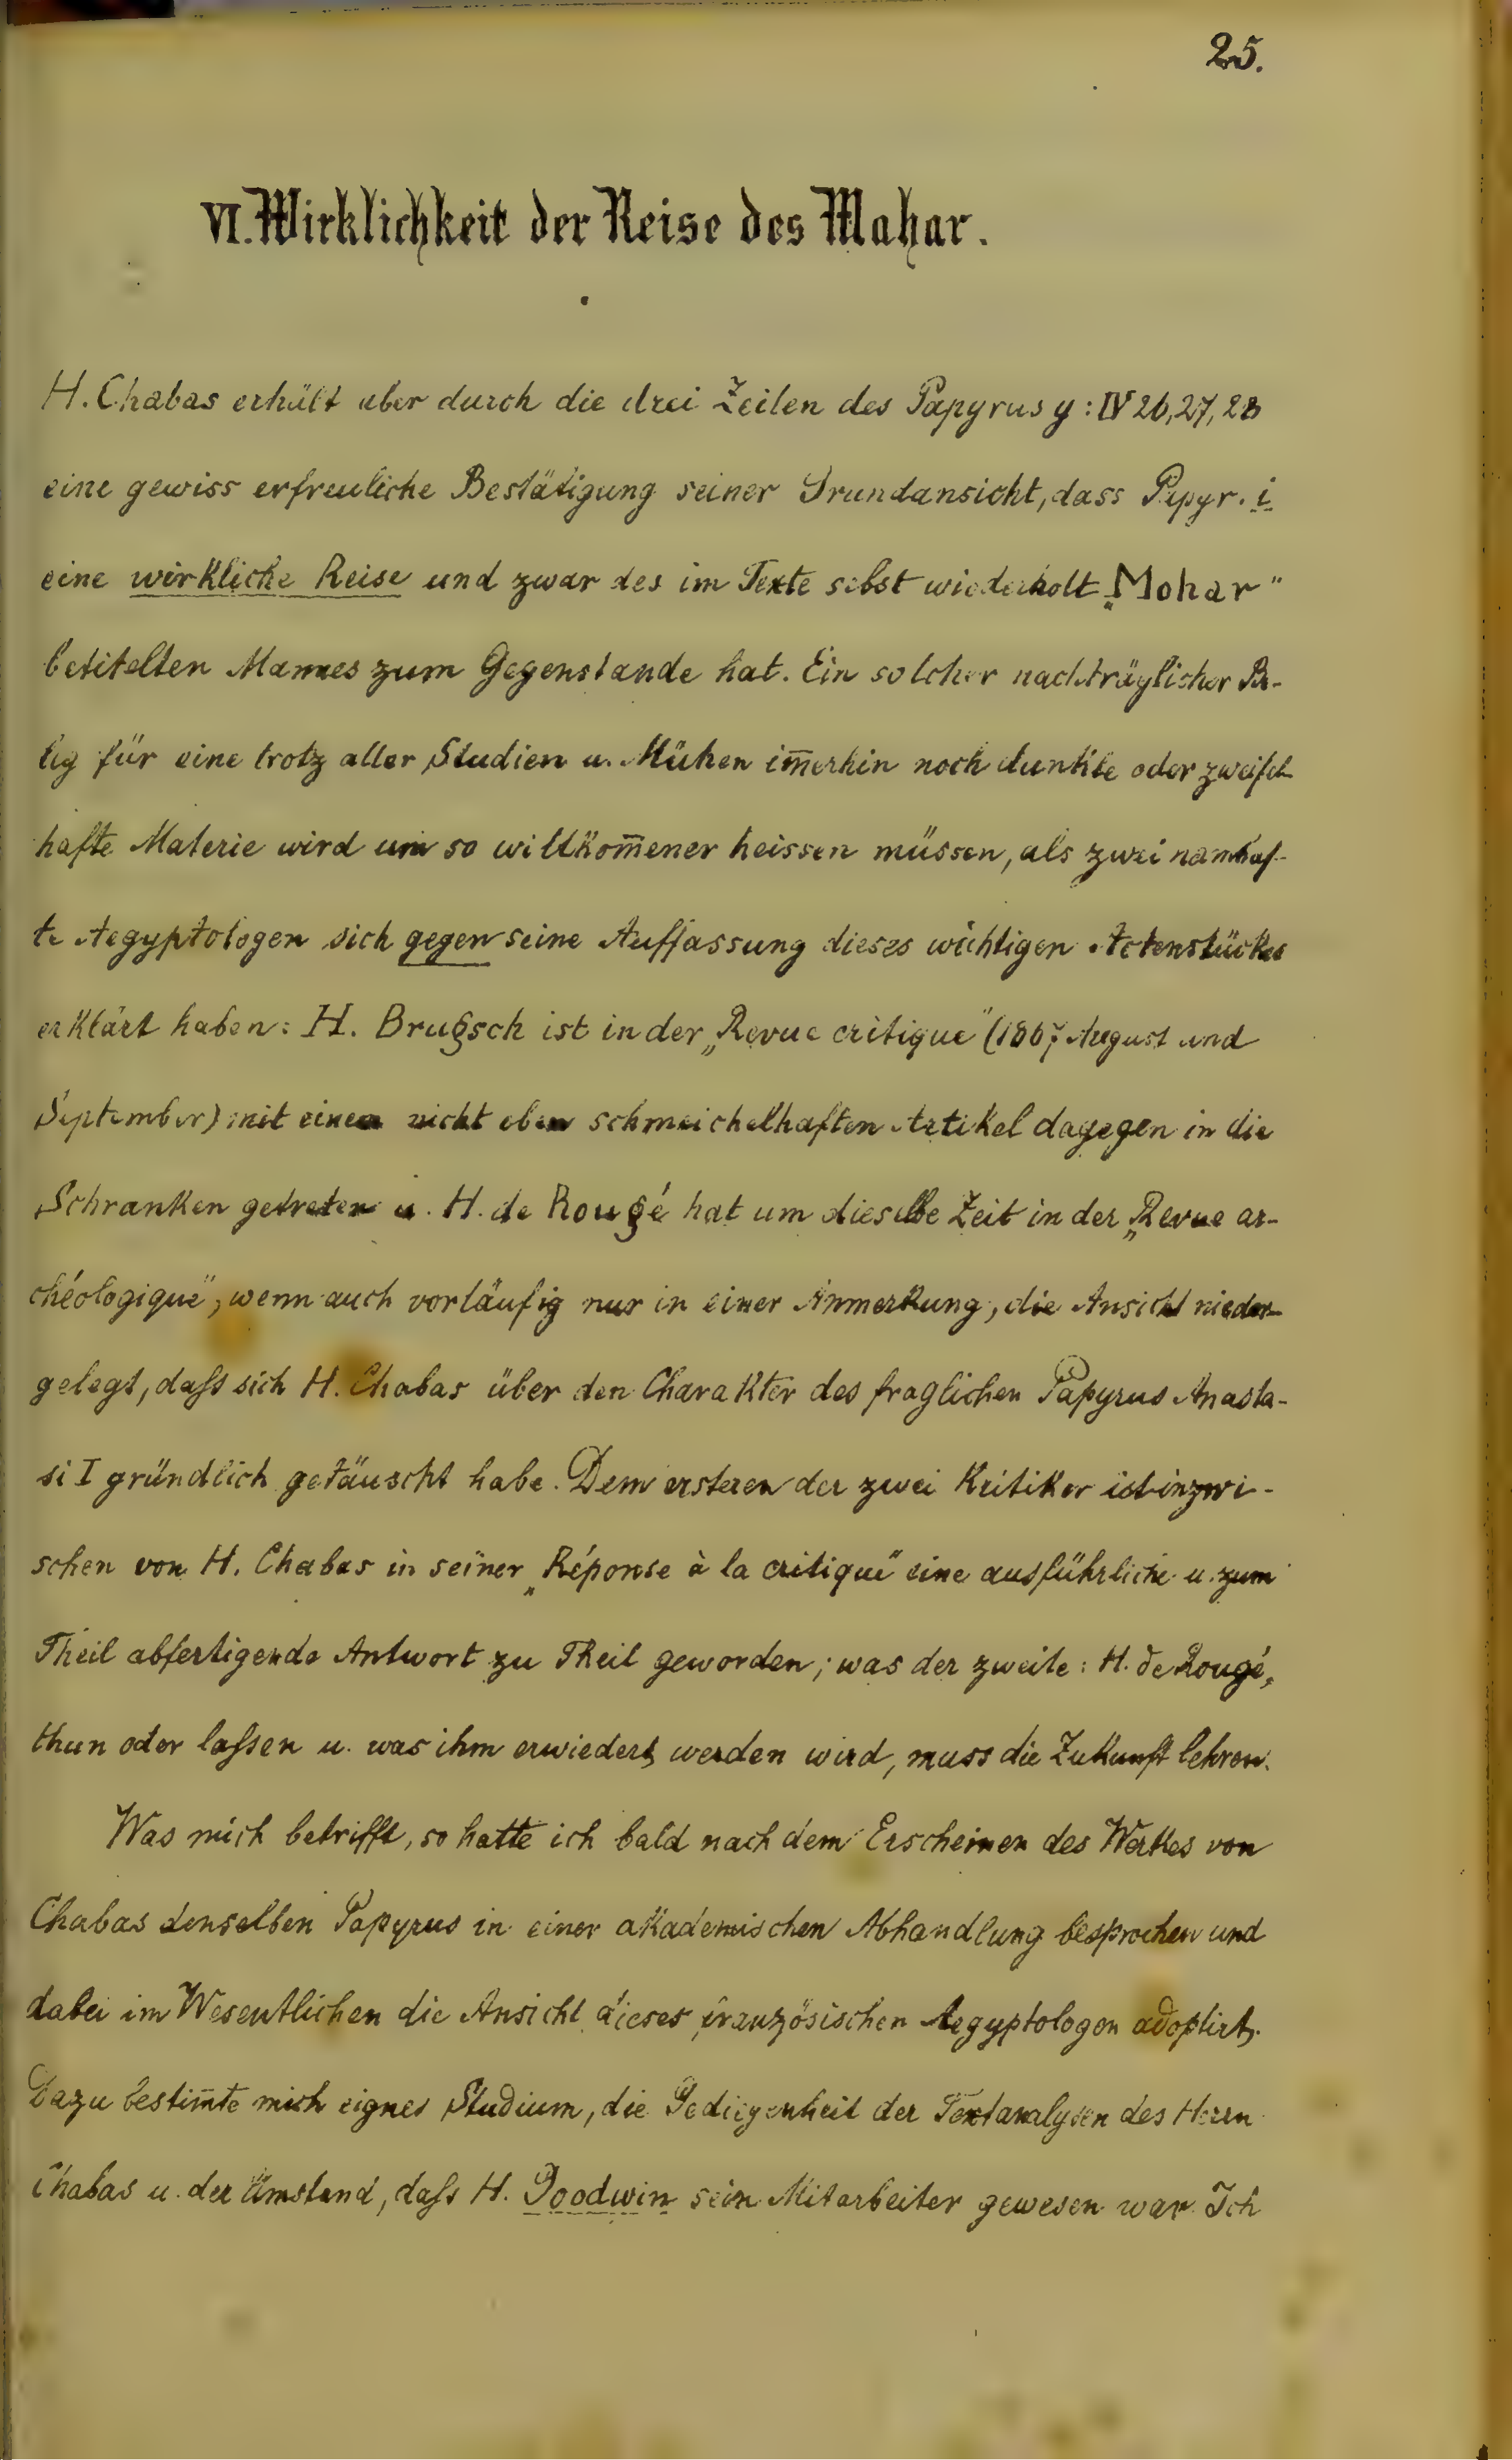 25.
VI. Wirklichkeit der Reise des Mahar.
H. Chabas erhält aber durch die drei Zeilen des Papyrus y : IV 26, 27, 28
eine gewiss erfreuliche Bestätigung seiner Grundansicht, dass Papyr. i
eine wirkliche Reise und zwar des im Texte selbst wiederholt „Mohar"
betitelten Mannes zum Gegenstande hat. Ein solcher nachträglicher Be-
leg für eine trotz aller Studien u. Mühen im̅erhin noch dunkle oder zweifel-
hafte Materie wird um so willkom̅ener heissen müssen, als zwei namhaf-
te Aegyptologen sich gegen seine Auffassung dieses wichtigen Actenstückes
erklärt haben: H. Brugsch ist in der „Revue critique" (1867 August und
September) mit einem nicht eben schmeichelhaften Artikel dagegen in die
Schranken getreten u. H. de Rougé hat um dieselbe Zeit in der „Revue ar-
chéologique", wenn auch vorläufig nur in einer Anmerkung, die Ansicht nieder-
gelegt, daſs sich H. Chabas über den Charakter des fraglichen Papyrus Anasta-
si I gründlich getäuscht habe. Dem ersteren der zwei Kritiker ist inzwi-
schen von H. Chabas in seiner „Réponse à la critique" eine ausführliche u. zum
Theil abfertigende Antwort zu Theil geworden; was der zweite: H. de Rougé,
thun oder laſsen u. was ihm erwiedert werden wird, muss die Zukunft lehren.
Was mich betrifft, so hatte ich bald nach dem Erscheinen des Werkes von
Chabas denselben Papyrus in einer akademischen Abhandlung besprochen und
dabei im Wesentlichen die Ansicht dieses französischen Aegyptologen adoptirt.
Dazu bestim̅te mich eignes Studium, die Gediegenheit der Textanalysen des Herrn
Chabas u. der Umstand, daſs H. Goodwin sein Mitarbeiter gewesen war. Ich